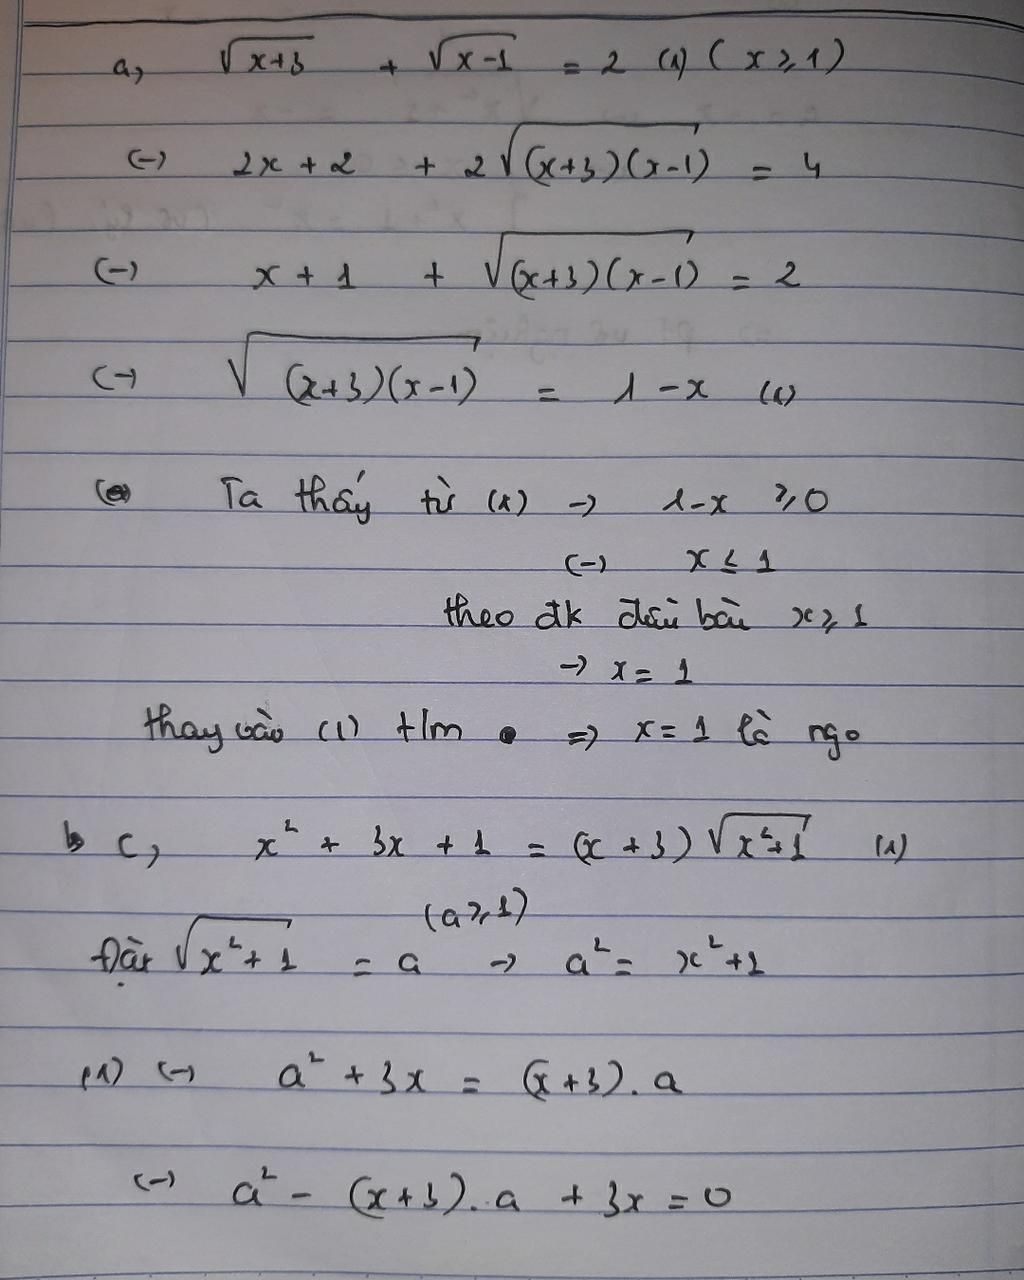 a, √(x+3) + √(x-1) = 2 (1) (x ≥ 1)
(-) 2x + 2 + 2√((x+3)(x-1)) = 4
(-) x + 1 + √((x+3)(x-1)) = 2
(-) √((x+3)(x-1)) = 1 - x (1)
Ta thấy từ (1) -> 1-x ≥ 0
(-) x ≤ 1
theo đk đầu bài x ≥ 1
-> x = 1
thay vào (1) t/m => x = 1 là ngo
c, x² + 3x + 1 = (x + 3) √(x²+1) (1)
(a ≥ 1)
Đặt √(x²+1) = a -> a² = x² + 1
(1) (-) a² + 3x = (x+3). a
(-) a² - (x+3). a + 3x = 0